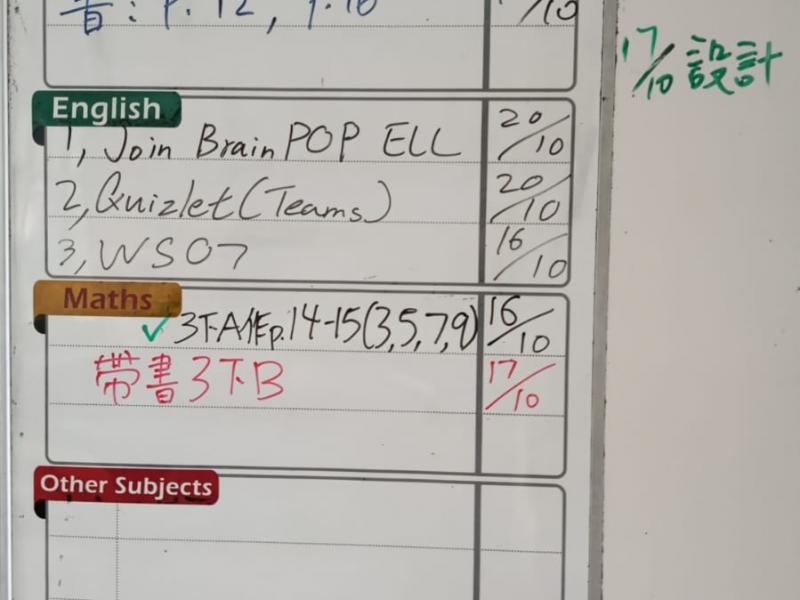 書: P. 12, P. 16
/10
17/10 設計
English
1, Join BrainPOP ELL 20/10
2, Quizlet (Teams) 20/10
3, WS07 16/10
Maths
✓ 3下A作p.14-15(3,5,7,9) 16/10
帶書3下B 17/10
Other Subjects